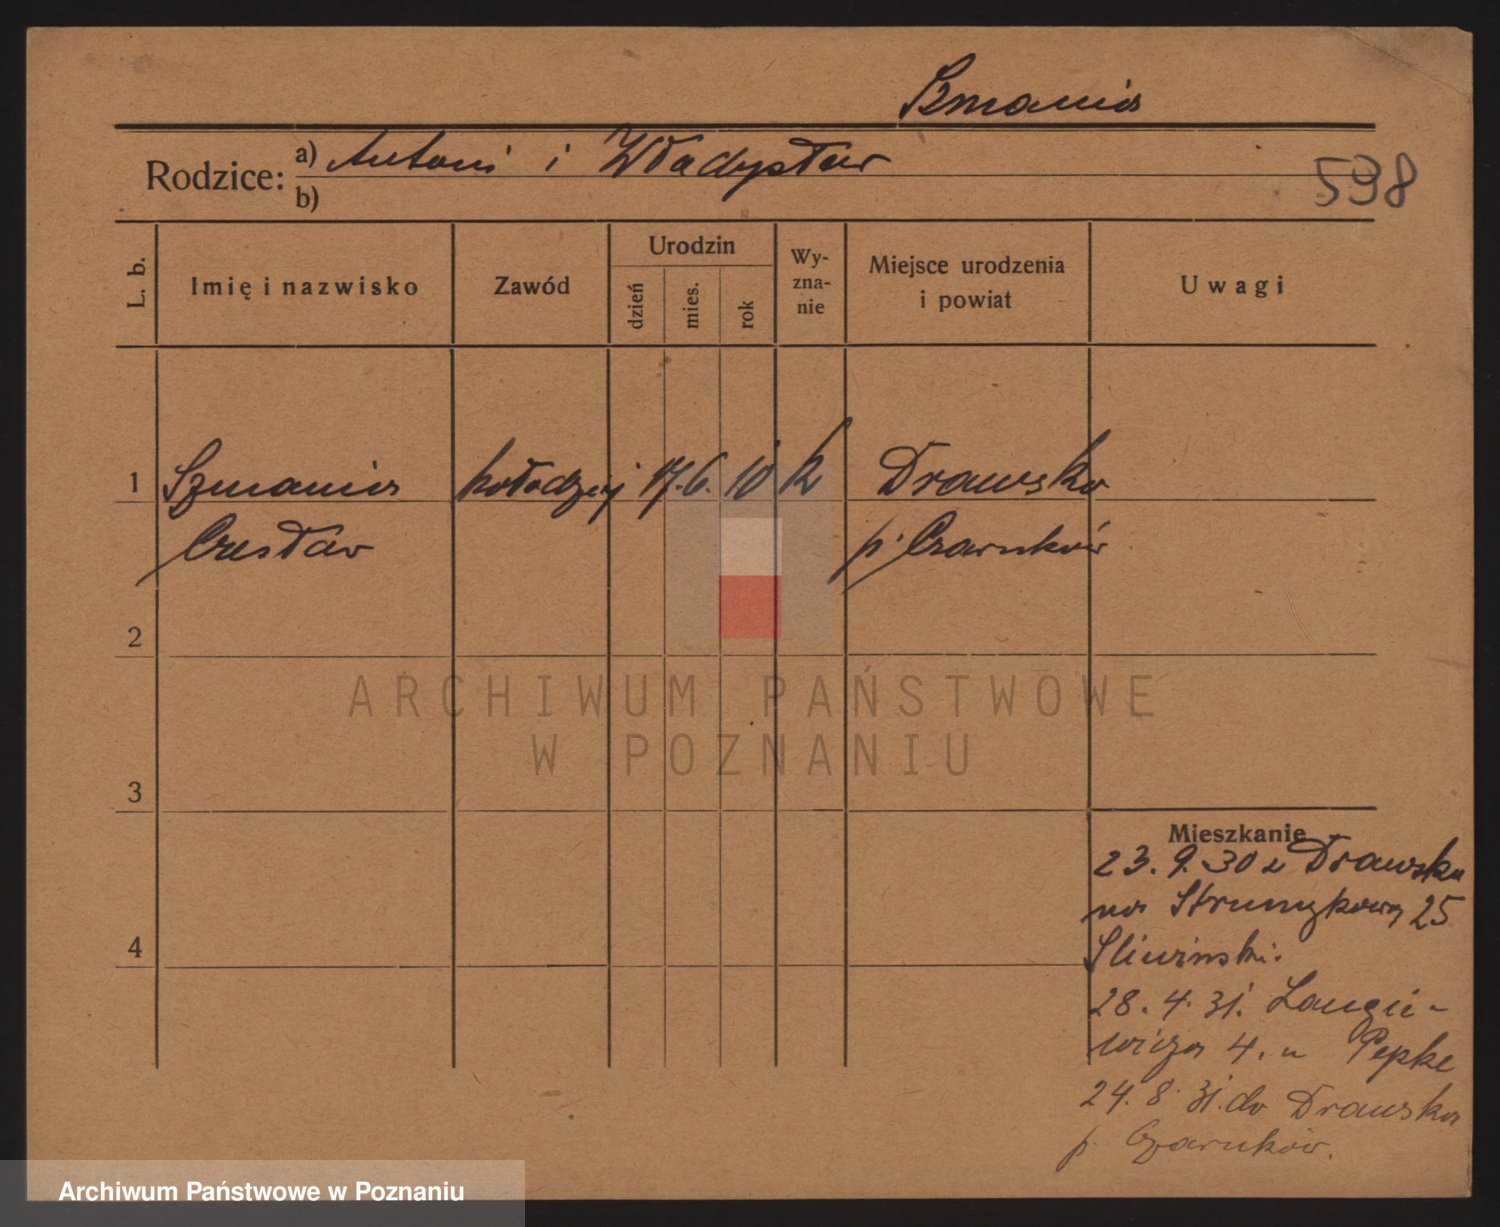 Szmania
Rodzice: a) Antoni i Władysław
b)
598
L. b.
Imię i nazwisko
Zawód
Urodzin
dzień
mies.
rok
Wy-
zna-
nie
Miejsce urodzenia
i powiat
Uwagi
1 Szmania kołodziej 17. 6. 10 k Drawsko
Czesław p. Czarnków
2
3
4
Mieszkanie
23. 9. 30 z Drawska
na Strumykową 25
Sliwinski.
28. 4. 31. Langie-
wicza 4. u Pepke
24. 8. 31. do Drawska
p. Czarnków.
ARCHIWUM PAŃSTWOWE
W POZNANIU
Archiwum Państwowe w Poznaniu